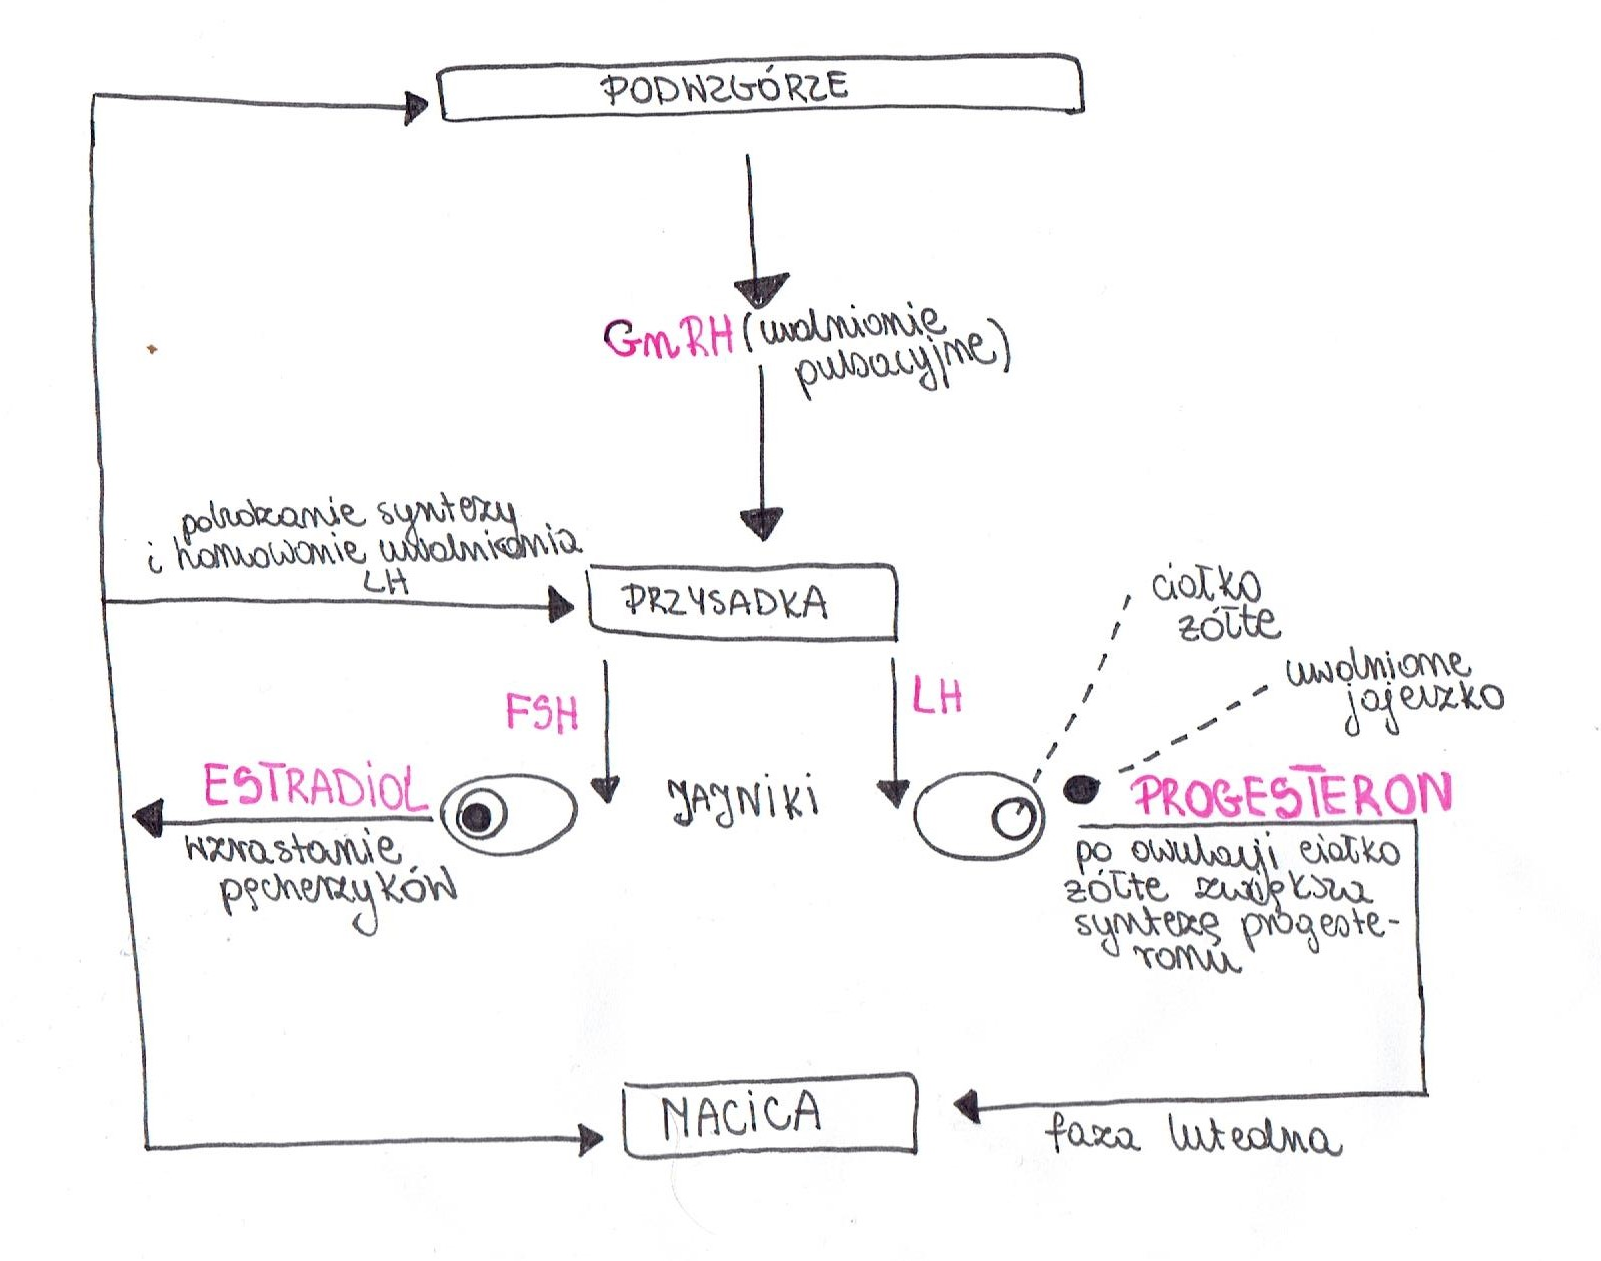 PODWZGÓRZE
GnRH (uwolnienie
pulsacyjne)
pobudzanie syntezy
i hamowanie uwolnienia
LH
PRZYSADKA
ciałko
żółte
uwolnione
jajeczko
FSH
LH
ESTRADIOL
JAJNIKI
PROGESTERON
wzrastanie
pęcherzyków
po owulacji ciałko
żółte zwiększa
syntezę progeste-
ronu
MACICA
faza lutealna